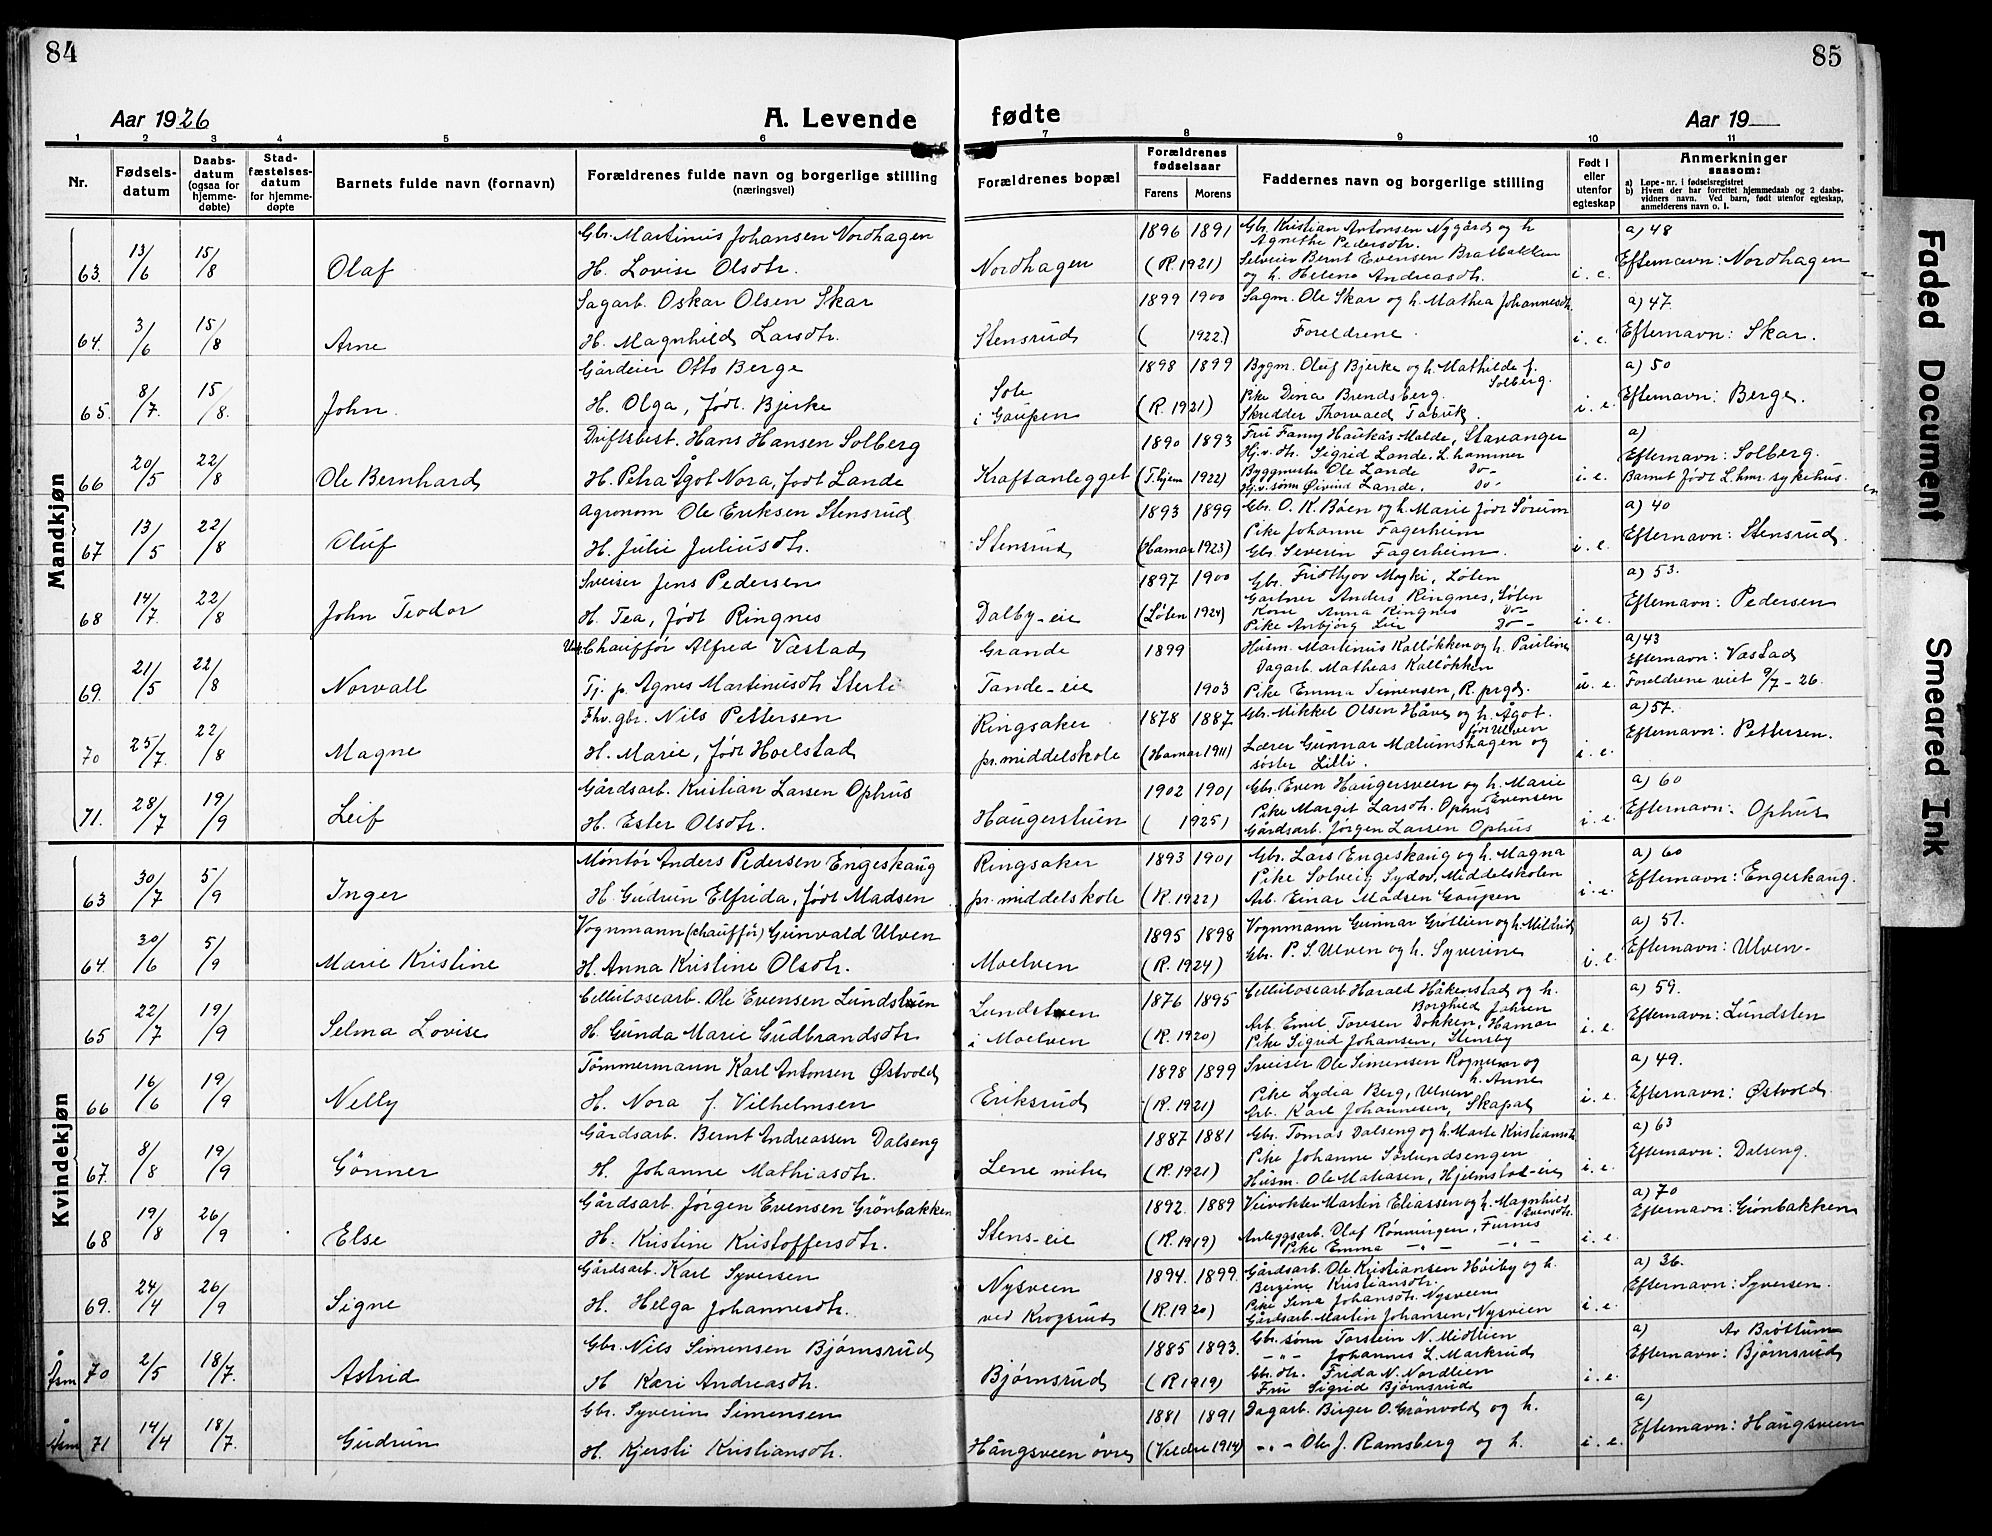 84
Aar 1926
A. Levende
1 2 3 4 5 6
Nr.
Fødsels-
datum
Daabs-
datum
(ogsaa for
hjemme-
døbte)
Stad-
fæstelses-
datum
for hjemme-
døpte
Barnets fulde navn (fornavn)
Forældrenes fulde navn og borgerlige stilling
(næringsvei)
Mandkjøn
63. 13/6 15/8 Olaf
Gbr. Martinus Johansen Nordhagen
H. Lovise Olsdtr.
64. 3/6 15/8 Arne
Sagarb. Oskar Olsen Skar
H. Magnhild Larsdtr.
65. 8/7. 15/8. John.
Gårdeier Otto Berge
H. Olga, født. Bjerke
66 20/5 22/8 Ole Bernhard
Driftsbest. Hans Hansen Solberg
H. Petra Ågot Nora, født Lande
67 13/5 22/8 Oluf
Agronom Ole Eriksen Stensrud
H. Julie Juliusdtr.
68 14/7. 22/8 John Teodor
Sveiser Jens Pedersen
H. Tea, født Ringnes
69. 21/5 22/8 Norvall
Chauffør Alfred Væstad
Tj. p. Agnes Martinusdtr Sterli
70 25/7 22/8 Magne
Fhv. gbr. Nils Pettersen
H. Marie, født Hoelstad
71. 28/7 19/9 Leif
Gårdsarb. Kristian Larsen Ophus
H. Ester Olsdtr.
Kvindekjøn
63 30/7 5/9 Inger
Montør Anders Pedersen Engeskaug
H. Gudrun Elfrida, født Madsen
64. 30/6 5/9 Marie Kristine
Vognmann (chauffør) Gunvald Ulven
H. Anna Kristine Olsdtr.
65 22/7 19/9 Selma Lovise
Cellulosearb. Ole Evensen Lundstuen
H. Gunda Marie Gudbrandsdtr
66 16/6 19/9 Nelly
Tømmermann Karl Antonsen Østvold
H. Nora f. Vilhelmsen
67. 8/8 19/9 Gunner
Gårdsarb. Bernt Andreassen Dalseng
H. Johanne Mathiasdtr.
68 19/8 26/9 Else
Gårdsarb. Jørgen Evensen Grønbakken
H. Kristine Kristoffersdtr.
69. 24/4 26/9 Signe
Gårdsarb. Karl Syversen
H. Helga Johannesdtr.
Åsm 70 2/5 18/7. Astrid
Gbr. Nils Simensen Bjørnsrud
H Kari Andreasdtr.
Åsm 71 14/4 18/7. Gudrun
Gbr. Syverin Simensen
H. Kjersti Kristiansdtr.
85
fødte
Aar 19
7 8 9 10 11
Forældrenes bopæl
Forældrenes
fødselsaar
Farens Morens
Faddernes navn og borgerlige stilling
Født i
eller
utenfor
egteskap
Anmerkninger
saasom:
a) Løpe-nr. i fødselsregistret
b) Hvem der har forrettet hjemmedaab og 2 daabs-
vidners navn. Ved barn, født utenfor egteskap,
anmelderens navn o. l.
Nordhagen
1896 1891
(R. 1921)
Gbr. Kristian Antonsen Nygård og h
Agnethe Pedersdtr.
Selveier Bernt Evensen Bratbakken
og h. Helene Andreasdtr.
i. e.
a) 48
Efternavn: Nordhagen
Stensrud
1899 1900
( 1922.)
Sagm. Ole Skar og h. Mathea Johannesdtr.
Foreldrene.
i. e.
a) 47.
Efternavn: Skar.
Sole
i Gaupen
1898 1899
(R. 1921)
Bygm. Oluf Bjerke og h. Mathilde f.
Solberg.
Pike Dina Brendsberg.
Skredder Thorvald
i. e.
a) 50
Efternavn: Berge.
Kraftanlegget
1890 1893
(T.hjem 1922)
Fru Fanny Haukås-Molde, Stavanger
Hj.v. dtr. Sigrid Lande. L.hammer
Byggmester Ole Lande do-
Hj.v. sønn Øivind Lande. do-
i. e.
a)
Efternavn: Solberg.
Barnet født L.hmr. sykehus.
Stensrud
1893 1899
(Hamar 1923)
Gbr. O. K. Bøen og h. Marie født Sørum
Pike Johanne Fagerheim
Gbr. Severin Fagerheim.
i. e.
a) 40
Efternavn: Stensrud.
Dalby-eie
1897 1900
(Løten 1924)
Gbr. Fridtjov Løten
Gartner Anders Ringnes, Løten
Kone Anna Ringnes do-
Pike Anbjørg Lier do-
i. e.
a) 53.
Efternavn: Pedersen
Grande
Tande-eie
1899
1903
Husm. Martinus Kalløkken og h. Pauline
Dagarb. Mathias Kalløkken
Pike Emma Simensen, R. prgd.
u. e.
a) 43
Efternavn: Væstad
Foreldrene viet 9/7-26.
Ringsaker
pr. middelskole
1878 1887
(Hamar 1911)
Gbr. Mikkel Olsen Håve og h. Ågot.
født Ulven
Lærer Gunnar Mælumshagen og
søster Lilli.
i. e.
a) 57.
Efternavn: Pettersen.
Haugerstuen
1902 1901
( 1925)
Gbr. Even Haugersveen og h. Marie
Evensen
Pike Margit Larsdtr. Ophus
Gårdsarb. Jørgen Larsen Ophus
i. e.
a) 60
Efternavn: Ophus
Ringsaker
pr. middelskole
1893 1901
(R. 1922)
Gbr. Lars Engeskaug og h. Magna
Pike Solveig Sydov, Middelskolen
Arb. Einar Madsen Gaupen
i. e.
a) 60
Efternavn: Engeskaug.
Moelven
1895 1898
(R. 1924)
Vognmann Gunnar Grøtlien og h. Mildrid
Gbr. P. S. Ulven og h. Syverine
i. e.
a) 51.
Efternavn: Ulven-
Lundstuen
i Moelven
1876 1895
(R. 1920)
Cellulosearb Harald Håkenstad og h.
Borghild Johren
Arb. Emil Toresen Dokken, Hamar
Pike Sigrid Johansen, Stensby
i. e.
a) 59.
Efternavn: Lundsten
Eriksrud
1898 1899
(R. 1921)
Sveiser Ole Simensen Rognum og
h. Anne
Pike Lydia Berg, Ulven
Arb. Karl Johannesen, Skapal
i. e.
a) 49.
Efternavn: Østvold
Lene
1887 1881
(R. 1921)
Gbr. Tomas Dalseng og h. Marte Kristiansdtr
Pike Johanne Sørlundsengen
Husm. Ole Matiasen, Hjelmstad-eie
i. e.
a) 63
Efternavn: Dalseng.
Stens-eie
1892. 1889
(R. 1919)
Veivokter Martin Eliassen og h. Magnhild
Evensdtr.
Anleggsarb. Olaf Rønningen, Furnes
Pike Emma -"- -"-
i. e.
a) 70
Efternavn: Grønbakken
Nysveen
ved Krogsrud
1894. 1899.
(R. 1920)
Gårdsarb. Ole Kristiansen Høiby og h.
Bergine Kristiansdtr.
Pike Sina Johansdtr. Nysveen
Gårdsarb. Martin Johansen, Nysvien
i. e.
a) 36.
Efternavn: Syversen.
Bjørnsrud
1885 1893.
(R 1919)
Gbr. sønn Torstein N. Midtlien
-"- Johannes L. Markrud
Gbr. dtr. Frida N. Nordlien
Fru Sigrid Bjørnsrud
i. e.
a) Av Brøttum
Efternavn: Bjørnsrud
Haugsveen øvre
1881 1891
(Veldre 1914)
Dagarb. Birger O. Grønvold og h.
-"- Ole J. Ramsberg og h.
i. e.
a)
Efternavn: Haugsveen
Faded Document
Smeared Ink